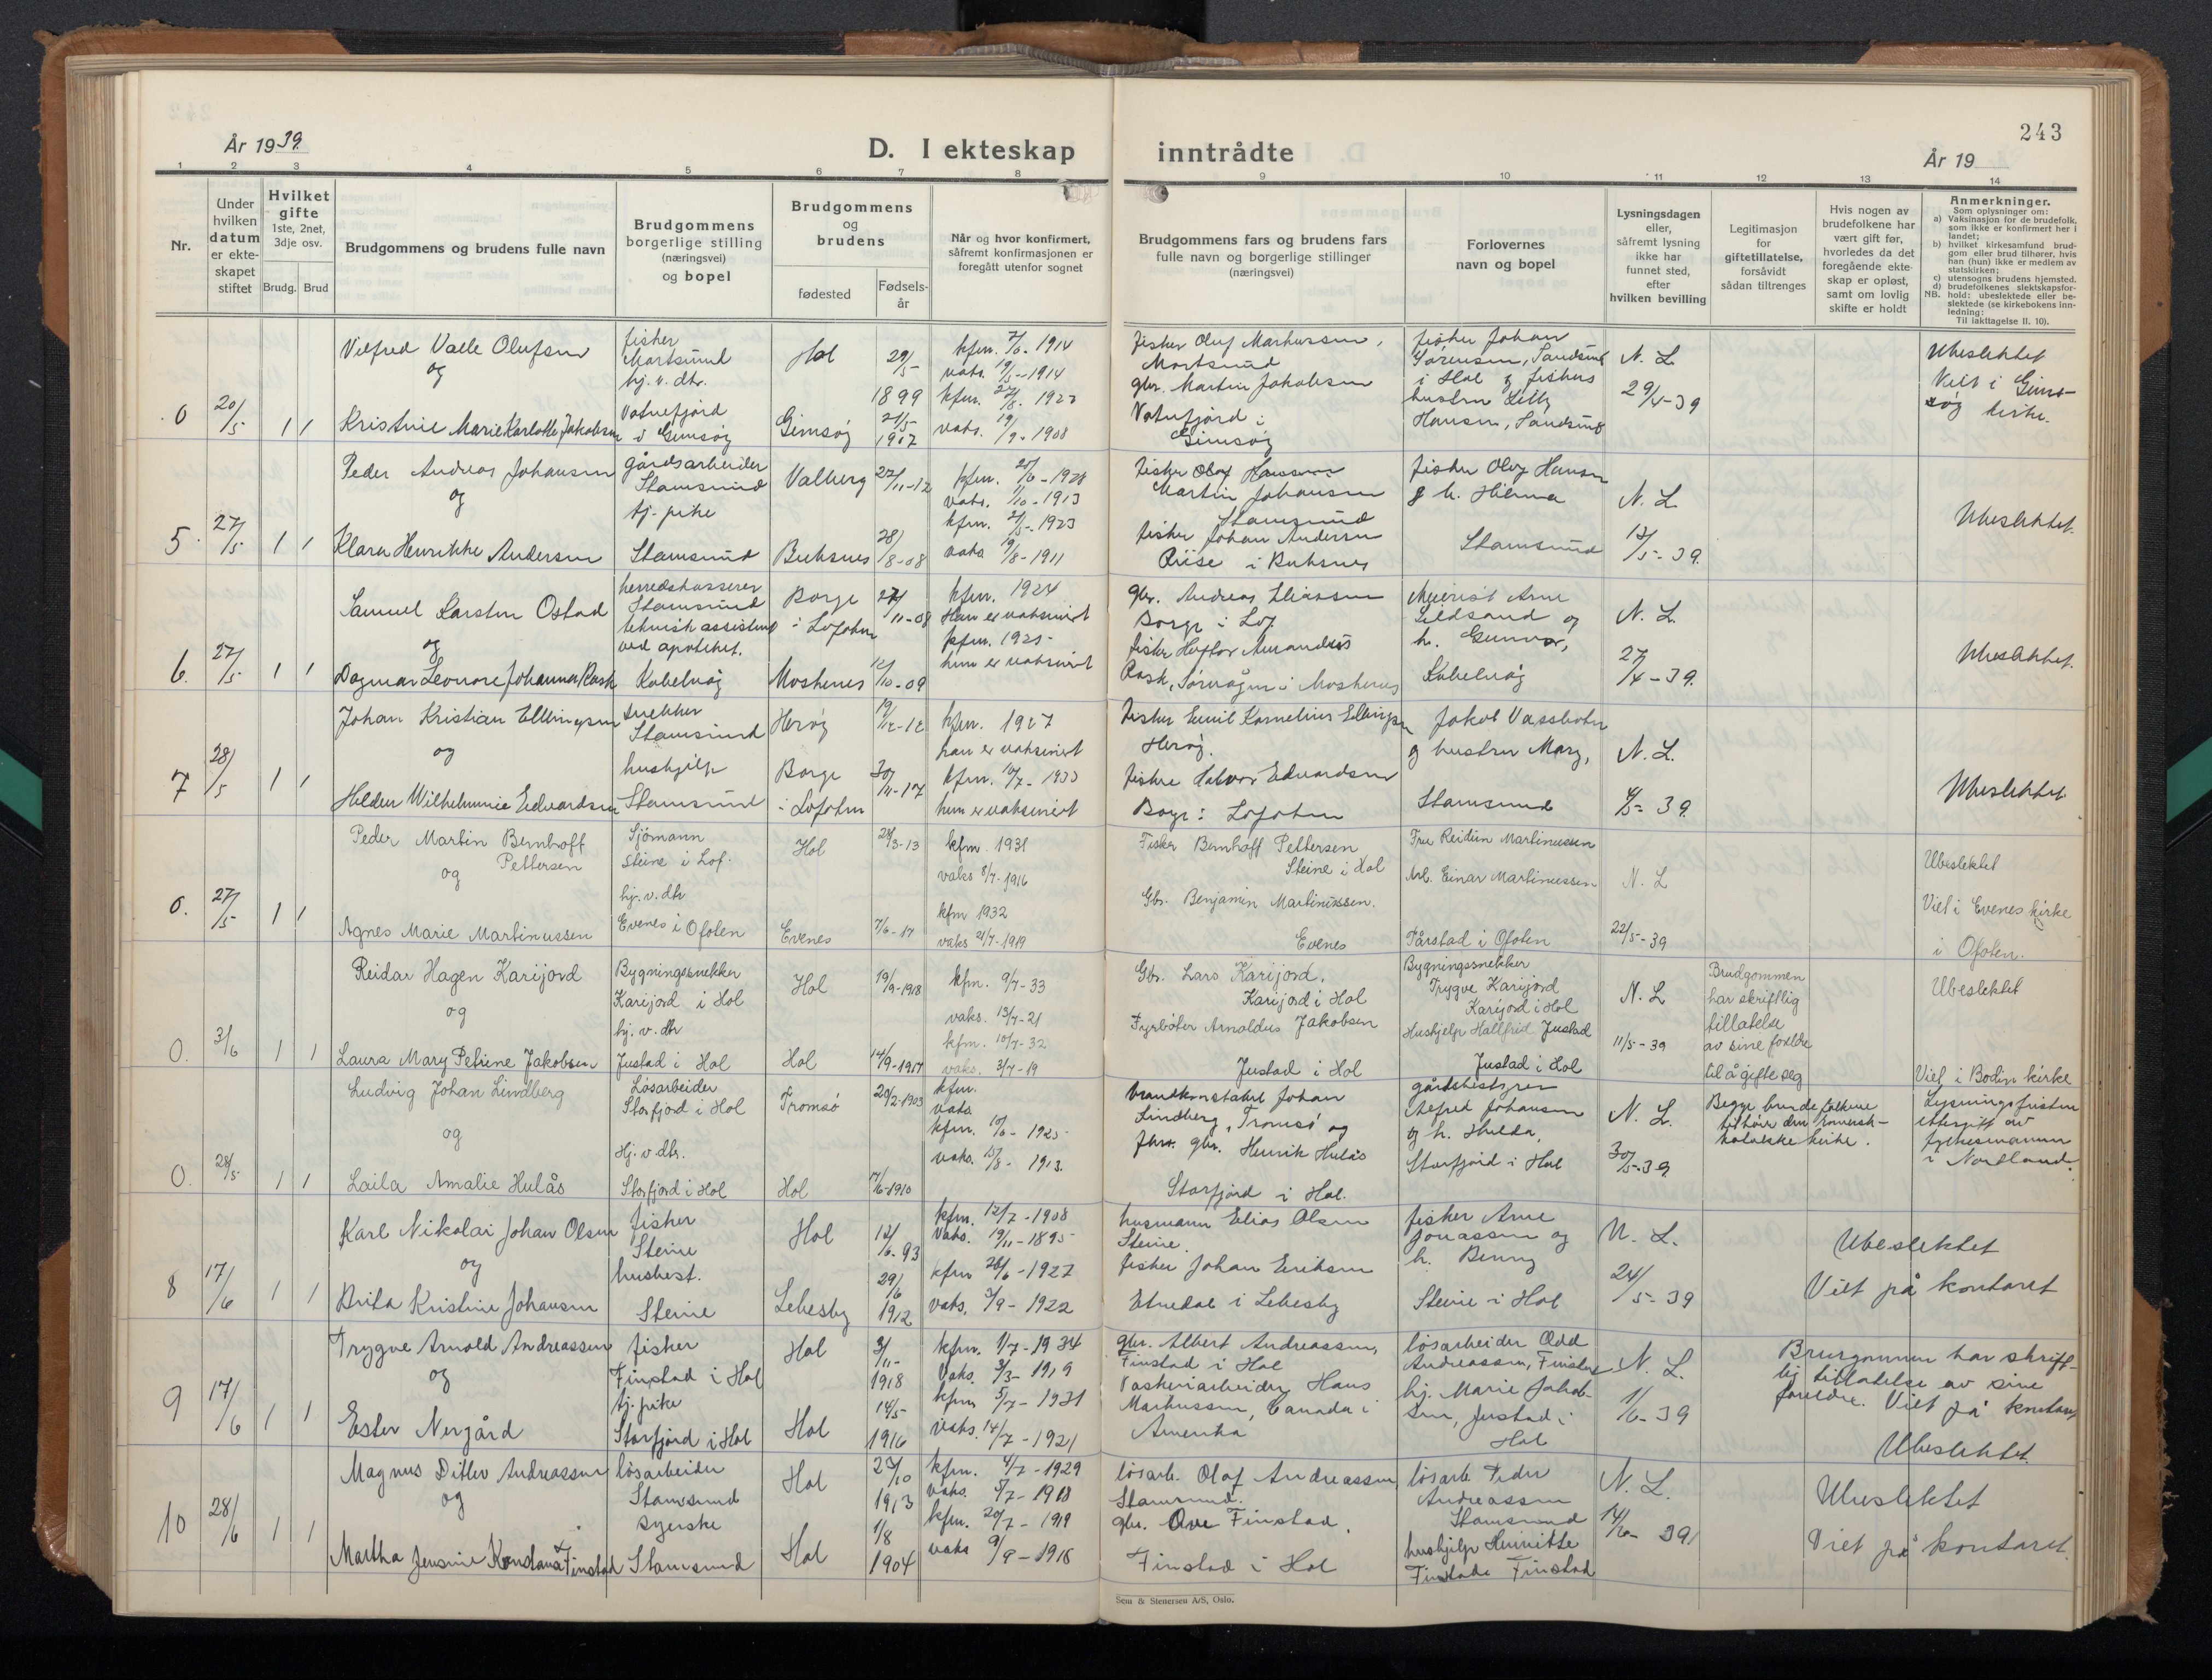 243
År 1939.
D. I ekteskap inntrådte
År 19
1 2 3 4 5 6 7 8 9 10 11 12 13 14
Nr.
Under hvilken datum er ekteskapet stiftet
Hvilket gifte 1ste, 2net, 3dje osv.
Brudg. Brud
Brudgommens og brudens fulle navn
Brudgommens borgerlige stilling (næringsvei) og bopel
Brudgommens og brudens
fødested
Fødselsår
Når og hvor konfirmert, såfremt konfirmasjonen er foregått utenfor sognet
Brudgommens fars og brudens fars fulle navn og borgerlige stillinger (næringsvei)
Forlovernes navn og bopel
Lysningsdagen eller, såfremt lysning ikke har funnet sted, efter hvilken bevilling
Legitimasjon for giftetillatelse, forsåvidt sådan tiltrenges
Hvis nogen av brudefolkene har vært gift før, hvorledes da det foregående ekteskap er opløst, samt om lovlig skifte er holdt
Anmerkninger.
Som oplysninger om:
a) Vaksinasjon for de brudefolk, som ikke er konfirmert her i landet;
b) hvilket kirkesamfund brudgom eller brud tilhører, hvis han (hun) ikke er medlem av statskirken;
c) utensogns brudens hjemsted.
d) brudefolkenes slektskapsforhold: ubeslektede eller beslektede (se kirkebokens innledning:
NB.
Til iakttagelse II. 10).
0 20/5 1 1
Vilfred Valle Olufsen
og
Kristine Marie Karlotte Jakobsen
fisher
Mortsund
hj. v. dtr.
Vatnefjord
i Gimsøy
Hol
Gimsøy
29/5-
1899
21/5-
1917
kfm. 7/6-1914
vaks. 19/5-1914
kfm. 27/8-1922
vaks. 19/9-1908
Fisker Oluf Markussen,
Mortsund
gbr. Martin Jakobsen
Vatnfjord i
Gimsøy
fisker Johan
Sørensen, Sandsund
i Hol og fiskers
hustru Lilly
Hansen, Sandsund
N. L.
29/4-39
Ubeslektet
Viet i Gims-
øy kirke.
5. 27/5 1 1
Peder Andreas Johansen
og
Klara Henrikke Andersen
gårdsarbeider
Stamsund
tj. pike
Stamsund
Valberg
Buksnes
27/11-12
28/8-08
kfm. 25/6-1928
vaks. 1/10-1913
kfm. 21/5-1923
vaks 19/8-1911
fisker Olaf Hansen
Martin Johansen
Stamsund
fisker Johan Andersen
Riise i Buksnes
fisker Olav Hansen
g h. Hilma
Stamsund
N. L.
12/5-39.
Ubeslektet.
6. 27/5 1 1
Samuel Karsten Ostad
og
Dagmar Leonore Johanna Rask
herredskasserer
Stamsund
teknisk assistent
ved apoteket.
Kabelvåg
Borge
i Lofoten
Moskenes
27/11-08
12/10-09
kfm. 1924
Han er vaksinert
kfm. 1925-
hun er vaksinert
gbr. Andreas Eliassen
Borge i Lof.
fisker Hartvig Amandus
Rask, Sørvågen i Moskenes
Meierist Arne
Sildsand og
h. Gunvor,
Kabelvåg
N. L.
27/4-39.
Ubeslektet.
7 28/5 1 1
Johan Kristian Ellingsen
og
Helden Wilhelmine Edvardsen
snekker
Stamsund
hushjelp
Stamsund
Herøy
Borge
i Lofoten
19/12-12
30/11-17
kfm. 1927
han er vaksinert
kfm. 10/7-1933
hun er vaksinert
fisker Emil Kornelius Ellingsen
Herøy.
fisker Halvor Edvardsen
Borge i Lofoten
Jakob Vassbotn
og hustru Mary,
Stamsund
N. L.
4/5-39.
Ubeslektet.
0. 27/5 1 1
Peder Martin Bernhoff
Pettersen
og
Agnes Marie Martinussen
Sjømann
Steine i Lof.
hj. v. dtr
Evenes i Ofoten
Hol
Evenes
28/3-13
7/6-17
kfm 1931
vaks 8/7-1916
kfm 1932
vaks 21/7-1919
Fisker Bernhoff Pettersen
Steine i Hol
Gbr. Benjamin Martinussen.
Evenes
Fru Reidun Martinussen
Arb. Einar Martinussen
Tårstad i Ofoten
N. L
22/5-39
Ubeslektet
Viet i Evenes kirke
i Ofoten.
0. 3/6 1 1
Reidar Hagen Karijord
og
Laura Mary Petrine Jakobsen
Bygningssnekker
Karijord i Hol
hj. v. dtr
Justad i Hol
Hol
Hol
19/9-1918
14/9-1917
kfm. 9/7-33
vaks. 13/7-21
kfm. 10/7-32
vaks. 3/7-19
Gbr. Lars Karijord.
Karijord i Hol
Fyrbøter Arnoldus Jakobsen
Justad i Hol
Bygningssnekker
Trygve Karijord
Karijord i Hol
Hushjelp Hallfrid Justad
Justad i Hol
N. L
11/5-39
Brudgommen
har skriftlig
tillatelse
av sine foreldre
til å gifte seg
Ubeslektet
Viet i Bodin kirke
0. 28/5 1 1
Ludvig Johan Lindberg
og
Laila Amalie Hulås
Løsarbeider
Storfjord i Hol
Hj. v. dtr.
Storfjord i Hol
Tromsø
Hol
20/2-1903
17/6-1910
kfm.
vaks.
kfm. 10/6-1925
vaks. 15/8-1913.
brandkonstabel Johan
Lindberg, Tromsø og
fhv. gbr. Henrik Hulås
Storfjord i Hol.
gårdsbestyrer
Alfred Johansen
og h. Hulda,
Storfjord i Hol
N. L.
30/5-39.
Begge brudefolkene
tilhører den romersk-
katolske kirke.
Lysningsfristen
ettergitt av
fylkesmannen
i Nordland.
8 17/6 1 1
Karl Nikolai Johan Olsen
og
Brita Kristine Johansen
fisker
Steine
husbest.
Steine
Hol
Lebesby
12/6-93
29/6
1912
kfm. 12/7-1908
Vaks. 19/11-1895
kfm 26/6-1927
vaks. 3/9-1922
husmann Elias Olsen
Steine.
fisker Johan Eriksen
Elvedal i Lebesby
fisker Arne
Jonassen og
h. Benny
Steine i Hol
N. L.
24/5-39
Ubeslektet
Viet på kontoret
9 17/6 1 1
Trygve Arnold Andreassen
og
Ester Nergård
fisker
Finstad i Hol
tj. pike
Storfjord i Hol
Hol
Hol
3/11-
1918
14/5-
1916
kfm. 1/7-1934
Vaks. 3/3-1919
kfm 5/7-1931
vaks. 14/7-1921
gbr. Albert Andreassen,
Finstad i Hol
Vaskeriarbeider Hans
Markussen, Canada i
Amerika
løsarbeider Odd
Andreassen, Finstad
hj. Marie Jakob-
sen, Justad i
Hol
N. L.
1/6-39
Brurgommen har skrift-
lig tillatelse av sine
foreldre. Viet på kontoret
Ubeslektet.
10 28/6 1 1
Magnus Ditlev Andreassen
og
Martha Jensine Konstanse Finstad
løsarbeider
Stamsund
syerske
Stamsund
Hol
Hol
27/10
1913
1/8
1904
kfm. 4/7-1929
vaks. 5/7-1918
kfm. 20/7-1919
vaks 9/9-1916
løsarb. Olaf Andreassen
Stamsund.
gbr. Ove Finstad,
Finstad i Hol
løsarb. Peder
Andreassen
Stamsund
hushjelp Henriette
Finstad Finstad
N. L.
14/6-39
Ubeslektet
Viet på kontoret.
Sem & Stenersen A/S, Oslo.